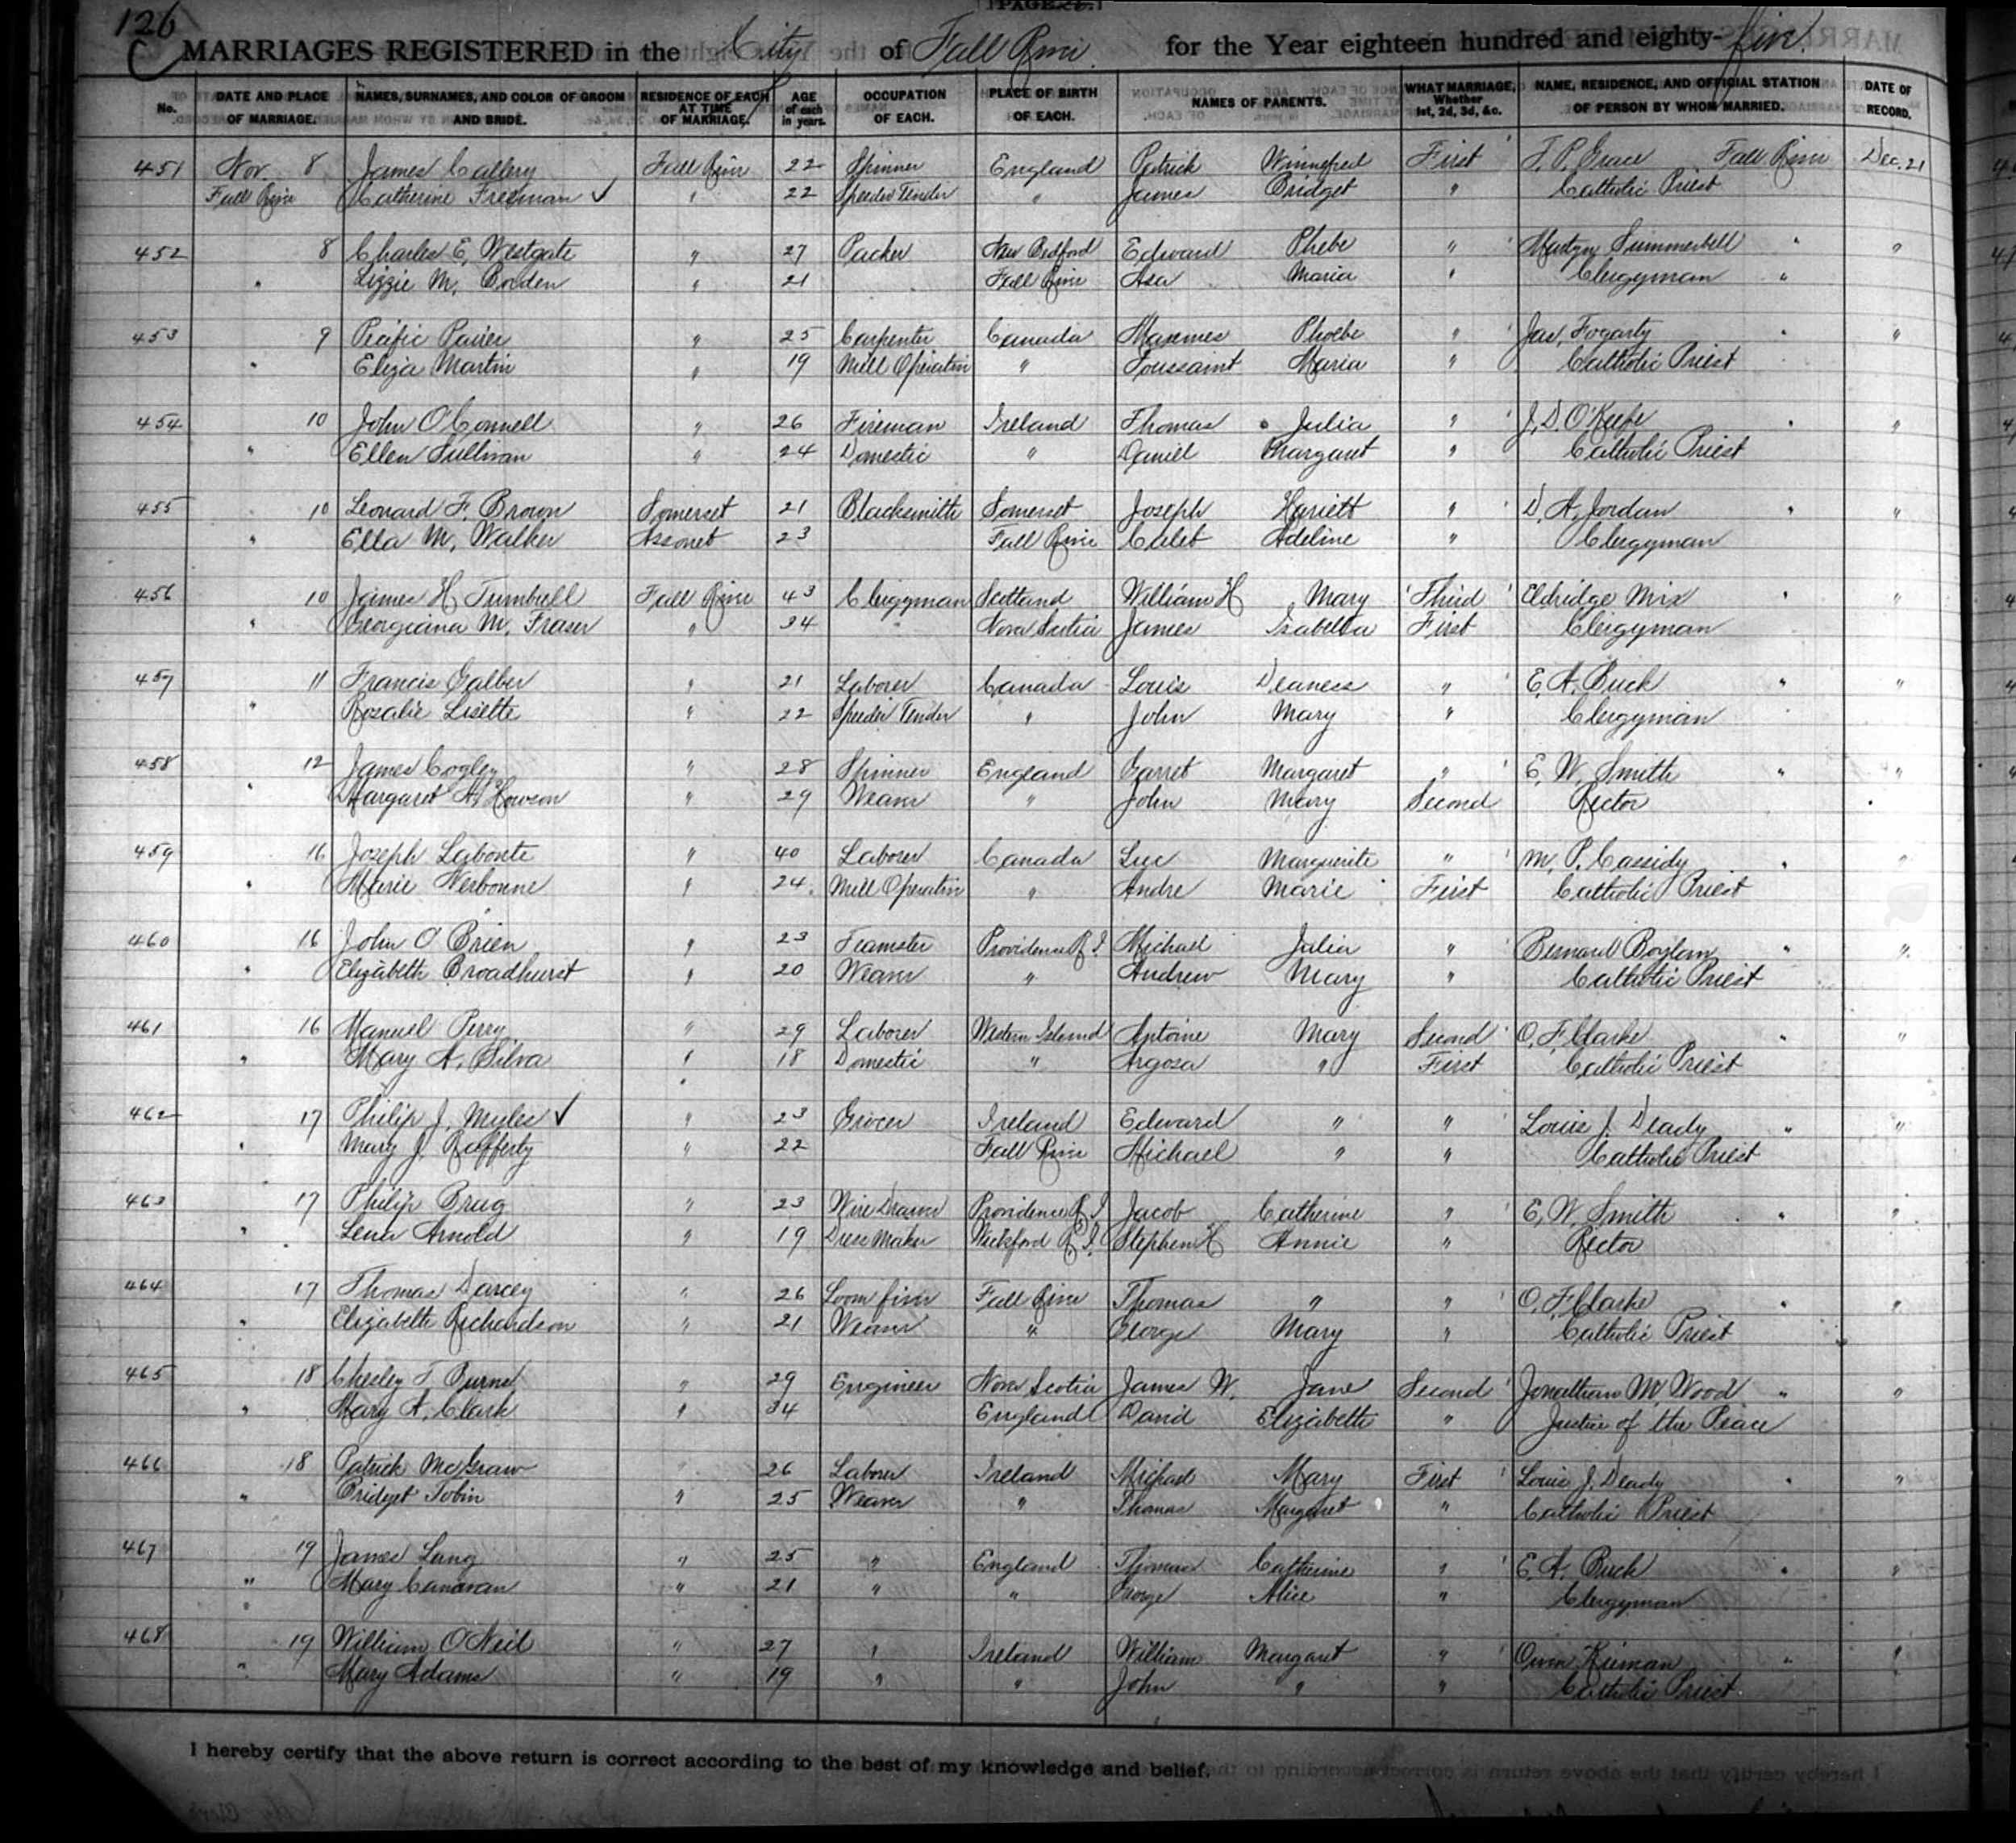 PAGE
126
C MARRIAGES REGISTERED in the City of Fall River for the Year eighteen hundred and eighty-five.
No. DATE AND PLACE OF MARRIAGE. NAMES, SURNAMES, AND COLOR OF GROOM AND BRIDE. RESIDENCE OF EACH AT TIME OF MARRIAGE. AGE of each in years. OCCUPATION OF EACH. PLACE OF BIRTH OF EACH. NAMES OF PARENTS. WHAT MARRIAGE, Whether 1st, 2d, 3d, &c. NAME, RESIDENCE, AND OFFICIAL STATION OF PERSON BY WHOM MARRIED. DATE OF RECORD.
451 Nov. 8 James Callery Fall River 22 Spinner England Patrick Winnefred First T. P. Grace Fall River Dec. 21
Fall River Catherine Freeman ✓ " 22 Speeder Tender " James Bridget " Catholic Priest
452 8 Charles E. Westgate " 27 Packer New Bedford Edward Phebe " Martyn Summerbell " "
" Lizzie M. Borden " 21 Fall River Asa Maria " Clergyman "
453 9 Pacific " 25 Carpenter Canada Phoebe " Jas. Fogarty " "
" Eliza Martin " 19 Mill Operative " Toussaint Maria " Catholic Priest
454 10 John O'Connell " 26 Fireman Ireland Thomas Julia " J. D. O'Keefe " "
" Ellen Sullivan " 24 Domestic " Daniel Margaret " Catholic Priest
455 10 Leonard F. Brown Somerset 21 Blacksmith Somerset Joseph Hariett " D. A. Jordan " "
" Ella M. Walker Assonet 23 Fall River Caleb Adeline " Clergyman
456 10 James H Turnbull Fall River 43 Clergyman Scotland William H Mary Third Eldridge Mix " "
" Georgiana M. Fraser " 34 Nova Scotia James Isabella First Clergyman
457 11 Francis Galber " 21 Laborer Canada Louis " E. A. Buck " "
" Rozalie Lisette " 22 Speeder Tender " John Mary " Clergyman
458 12 James Cogley " 28 Spinner England Garret Margaret " E. W. Smith " "
" Margaret A. Howson " 29 Weaver " John Mary Second Rector
459 16 Joseph Labonte " 40 Laborer Canada Luc Marguerite " M. P. Cassidy " "
" Marie Nerbonne " 24 Mill Operative " Andre Marie First Catholic Priest
460 16 John O'Brien " 23 Teamster Providence R. I. Michael Julia " Bernard Boylan " "
" Elizabeth Broadhurst " 20 Weaver " Andrew Mary " Catholic Priest
461 16 Manuel Perry " 29 Laborer Western Island Antoine Mary Second O. F. Clarke " "
" Mary A. Silva " 18 Domestic " " First Catholic Priest
462 17 Philip J. Myles ✓ " 23 Grocer Ireland Edward " " Louis J. Deady " "
" Mary J. Rafferty " 22 Fall River Michael " " Catholic Priest
463 17 Philip Brug " 23 Wire Drawer Providence R. I. Jacob Catherine " E. W. Smith " "
" Lena Arnold " 19 Dress Maker Wickford R. I. Stephen H Annie " Rector
464 17 Thomas Darcey " 26 Loom fixer Fall River Thomas " " O. F. Clarke " "
" Elizabeth Richardson " 21 Weaver " George Mary " Catholic Priest
465 18 Chesley T. Burns " 29 Engineer Nova Scotia James W. Jane Second Jonathan M. Wood " "
" Mary A. Clark " 34 England David Elizabeth " Justice of the Peace
466 18 Patrick McGraw " 26 Laborer Ireland Michael Mary First Louis J. Deady " "
" Bridget Tobin " 25 Weaver " Thomas Margaret " Catholic Priest
467 19 James Lang " 25 " England Thomas Catherine " E. A. Buck " "
" Mary Canavan " 21 " " George Alice " Clergyman
468 19 William O'Neil " 27 " Ireland William Margaret " Owen Kiernan " "
" Mary Adams " 19 " " John " " Catholic Priest
I hereby certify that the above return is correct according to the best of my knowledge and belief.